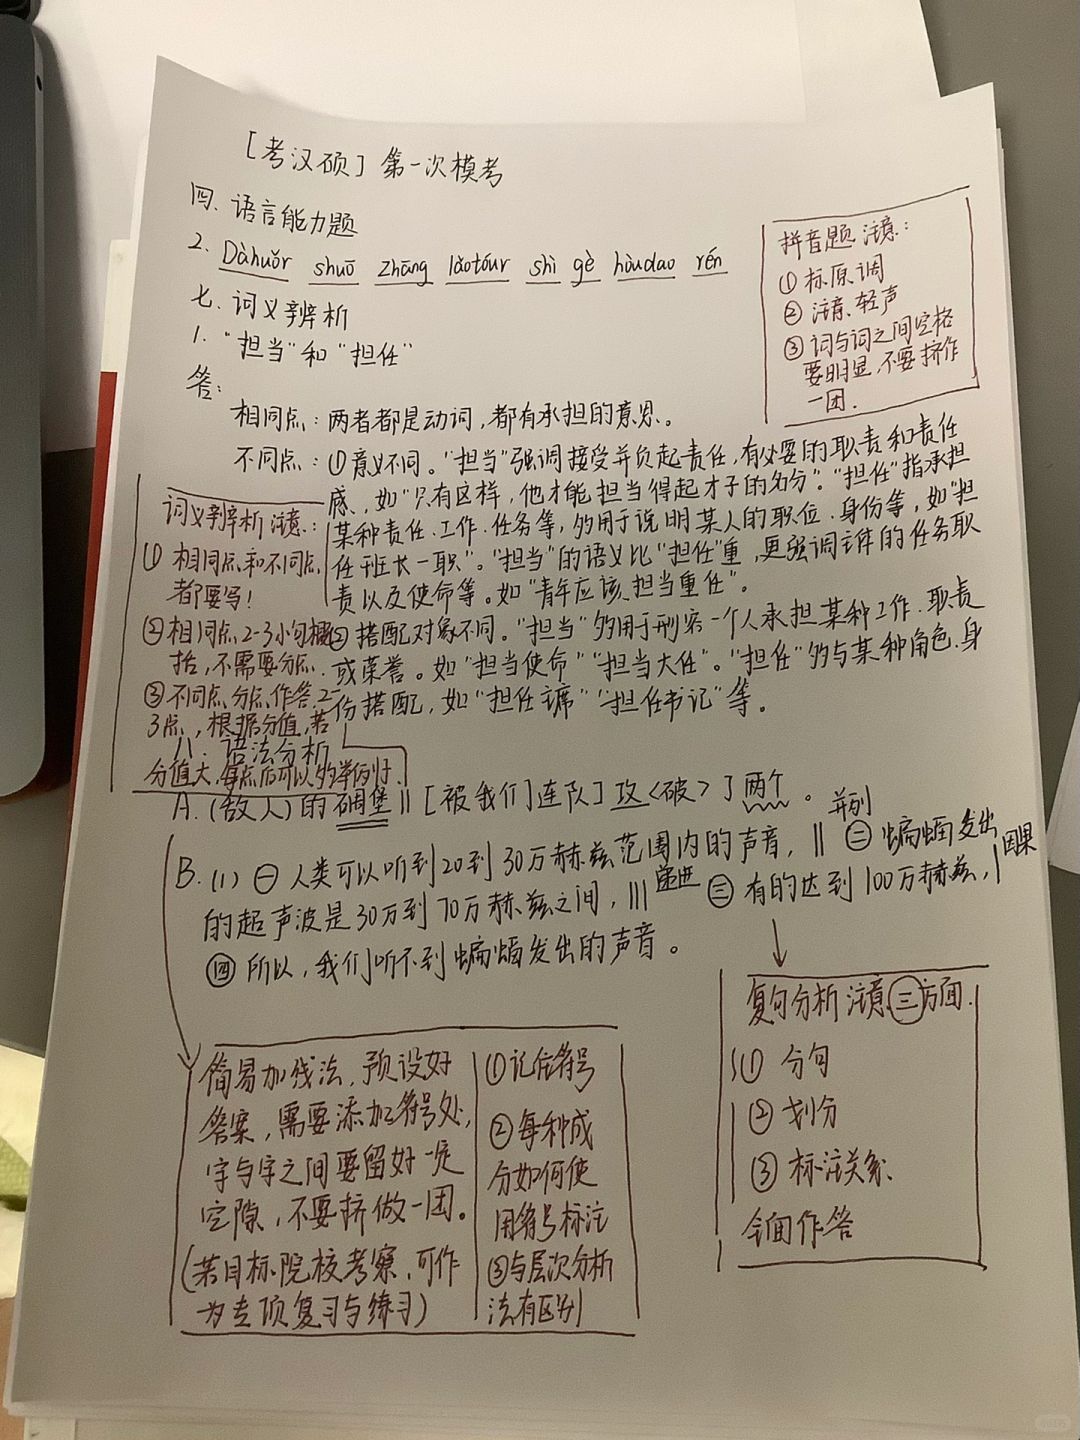 [考汉硕] 第一次模考
四. 语言能力题
2. Dàhuǒr shuō zhāng lǎotóur shì gè hòudao rén
拼音题 注意:
① 标原调
② 注意轻声
③ 词与词之间空格
要明显,不要挤作
一团.
七. 词义辨析
1. "担当"和"担任"
答:
相同点: 两者都是动词,都有承担的意思。
不同点: ①意义不同。"担当"强调接受并负起责任,有必要的职责和责任
感,如"只有这样,他才能担当得起才子的名分"。"担任"指承担
某种责任、工作、任务等,多用于说明某人的职位、身份等,如"担
任班长一职"。"担当"的语义比"担任"重,更强调主体的任务职
责以及使命等。如"青年应该担当重任"。
②搭配对象不同。"担当"多用于形容一个人承担某种工作、职责
或荣誉。如"担当使命""担当大任"。"担任"多与某种角色、身
份搭配,如"担任主席""担任书记"等。
词义辨析 注意:
① 相同点和不同点
都要写!
②相同点2-3小句概
括,不需要分点.
③不同点分点作答2-
3点,根据分值,若
分值大,每点后可以多举例子.
八. 语法分析
A. (敌人)的碉堡‖[被我们连队]攻〈破〉了两个。
B. (1) ㊀人类可以听到20到30万赫兹范围内的声音,‖并列 ㊁蝙蝠发出
的超声波是30万到70万赫兹之间,|||递进 ㊂有的达到100万赫兹,|因果
㊃所以,我们听不到蝙蝠发出的声音。
复句分析 注意㊂方面.
① 分句
② 划分
③ 标注关系
全面作答
简易加线法,预设好
答案,需要添加符号处,
字与字之间要留好一定
空隙,不要挤做一团。
(若目标院校考察,可作
为专项复习与练习)
①记住符号
②每种成
分如何使
用符号标注
③与层次分析
法有区别